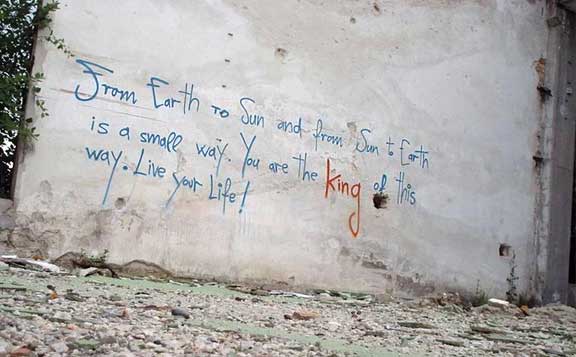 From Earth to Sun and from Sun to Earth
is a small way. You are the king of this
way. Live your Life!